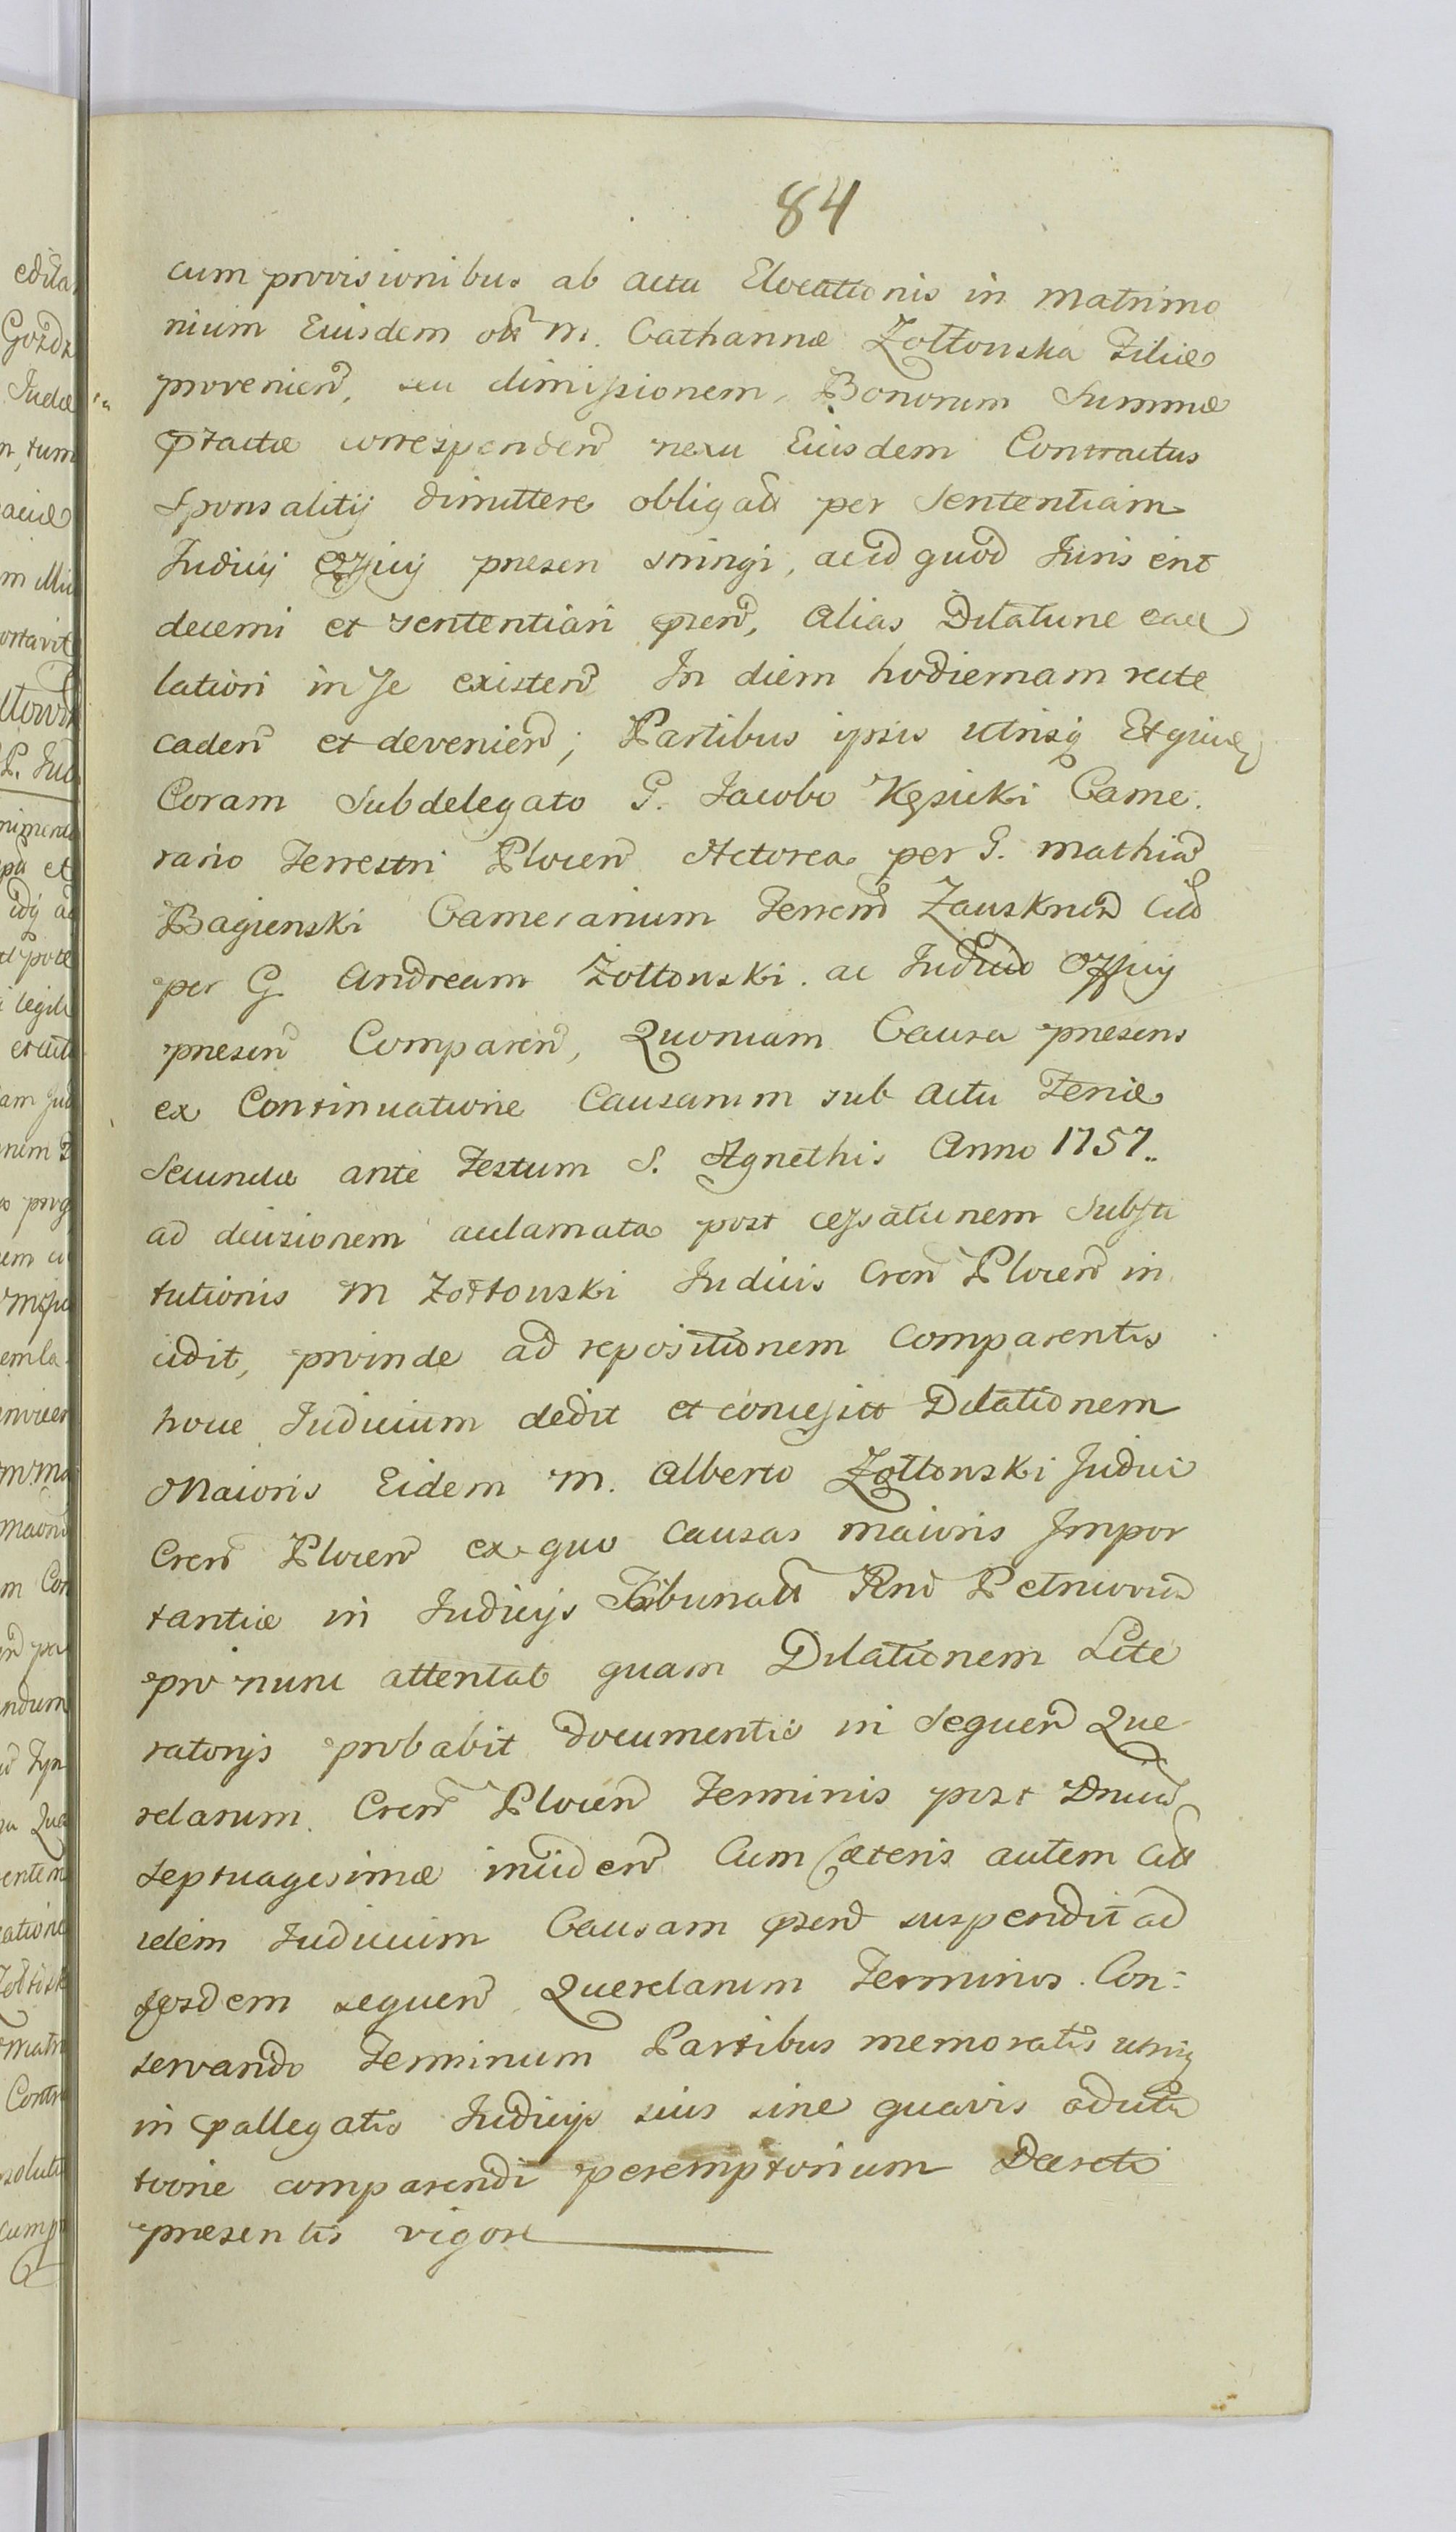 84
cum provisionibus ab actu Elocationis in matrimo
nium Eiusdem olĩ M. Catharinæ Zołtowska Filiæ
provenieñ, seu dimissionem, Bonorum Summæ
ꝓtactæ corresponden̄ nexu Eiusdem Contractus
Sponsalitij dimittere obligati per Sententiam
Judicij Officij presen stringi, acid quod Juris erit
decerni et sententiari ꝓsen̄, alias Dilatione
lationi in se existen̄ In diem hodiernam recte
caden̄ et devenien̄; Partibus ipsis utrisq
Coram Subdelegato G. Jacobo Kęsicki Came.
rario Terrestri Plocen̄ Actorea per G. Mathiã
Bagienski Camerarium Terren̄ Zauskren̄ Citã
per G. Andream Zołtowski. ac Judicio Officij
presen̄ Comparen̄, Quoniam Causa presens
ex Continuatione Causarum sub actu Feriæ
Secundæ ante Festum S. Agnethis Anno 1757..
ad decisionem acclamata post cessationem Substi
tutionis M Zołtowski Judicis Cren̄ Plocen̄ in
cidit, proinde ad repositionem Comparentis
hocce Judicium dedit et concessit Dilationem
Maioris Eidem M. Alberto Zołtowski Judici
Cren̄ Plocen̄ ex quo Causas maioris Impor
tantiæ in Judicijs Tribunali Rni Petricovien̄
pro nunc attentat quam Dilationem Lite
ratorijs probabit documentis in Sequen̄ Que
relarum Cren̄ Plocen̄ Terminis post Dnicã
Septuagesimæ inciden̄ Cum Cæteris autem Citĩ
idem Judicium Causam ꝓsen̄ suspendit ad
eosdem sequen̄ Querelarum Terminos. Con:
servando Terminum Partibus memoratis utrisq
in ꝓallegatis Judicijs suis sine quavis adcita
tione comparendi peremptorium Decreti
presentis vigore